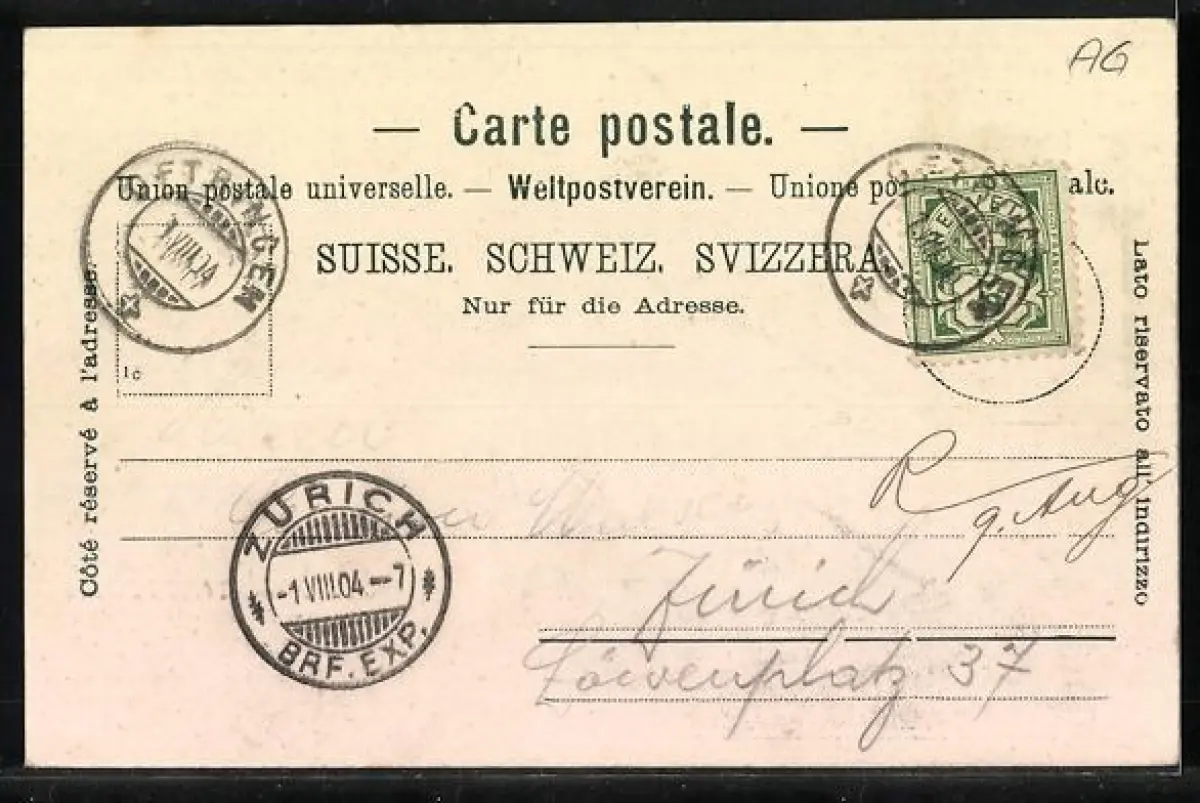 AG
— Carte postale. —
Union postale universelle. — Weltpostverein. — Unione po ale.
SUISSE. SCHWEIZ. SVIZZERA
Nur für die Adresse.
Côté réservé à l'adresse.
Lato riservato all' indirizzo
OFTRINGEN
1.VIII.04
OFTRINGEN
1c
R
9. Aug.
ZÜRICH
-1 VIII.04.--7
BRF. EXP.
Zürich
Löwenplatz 37